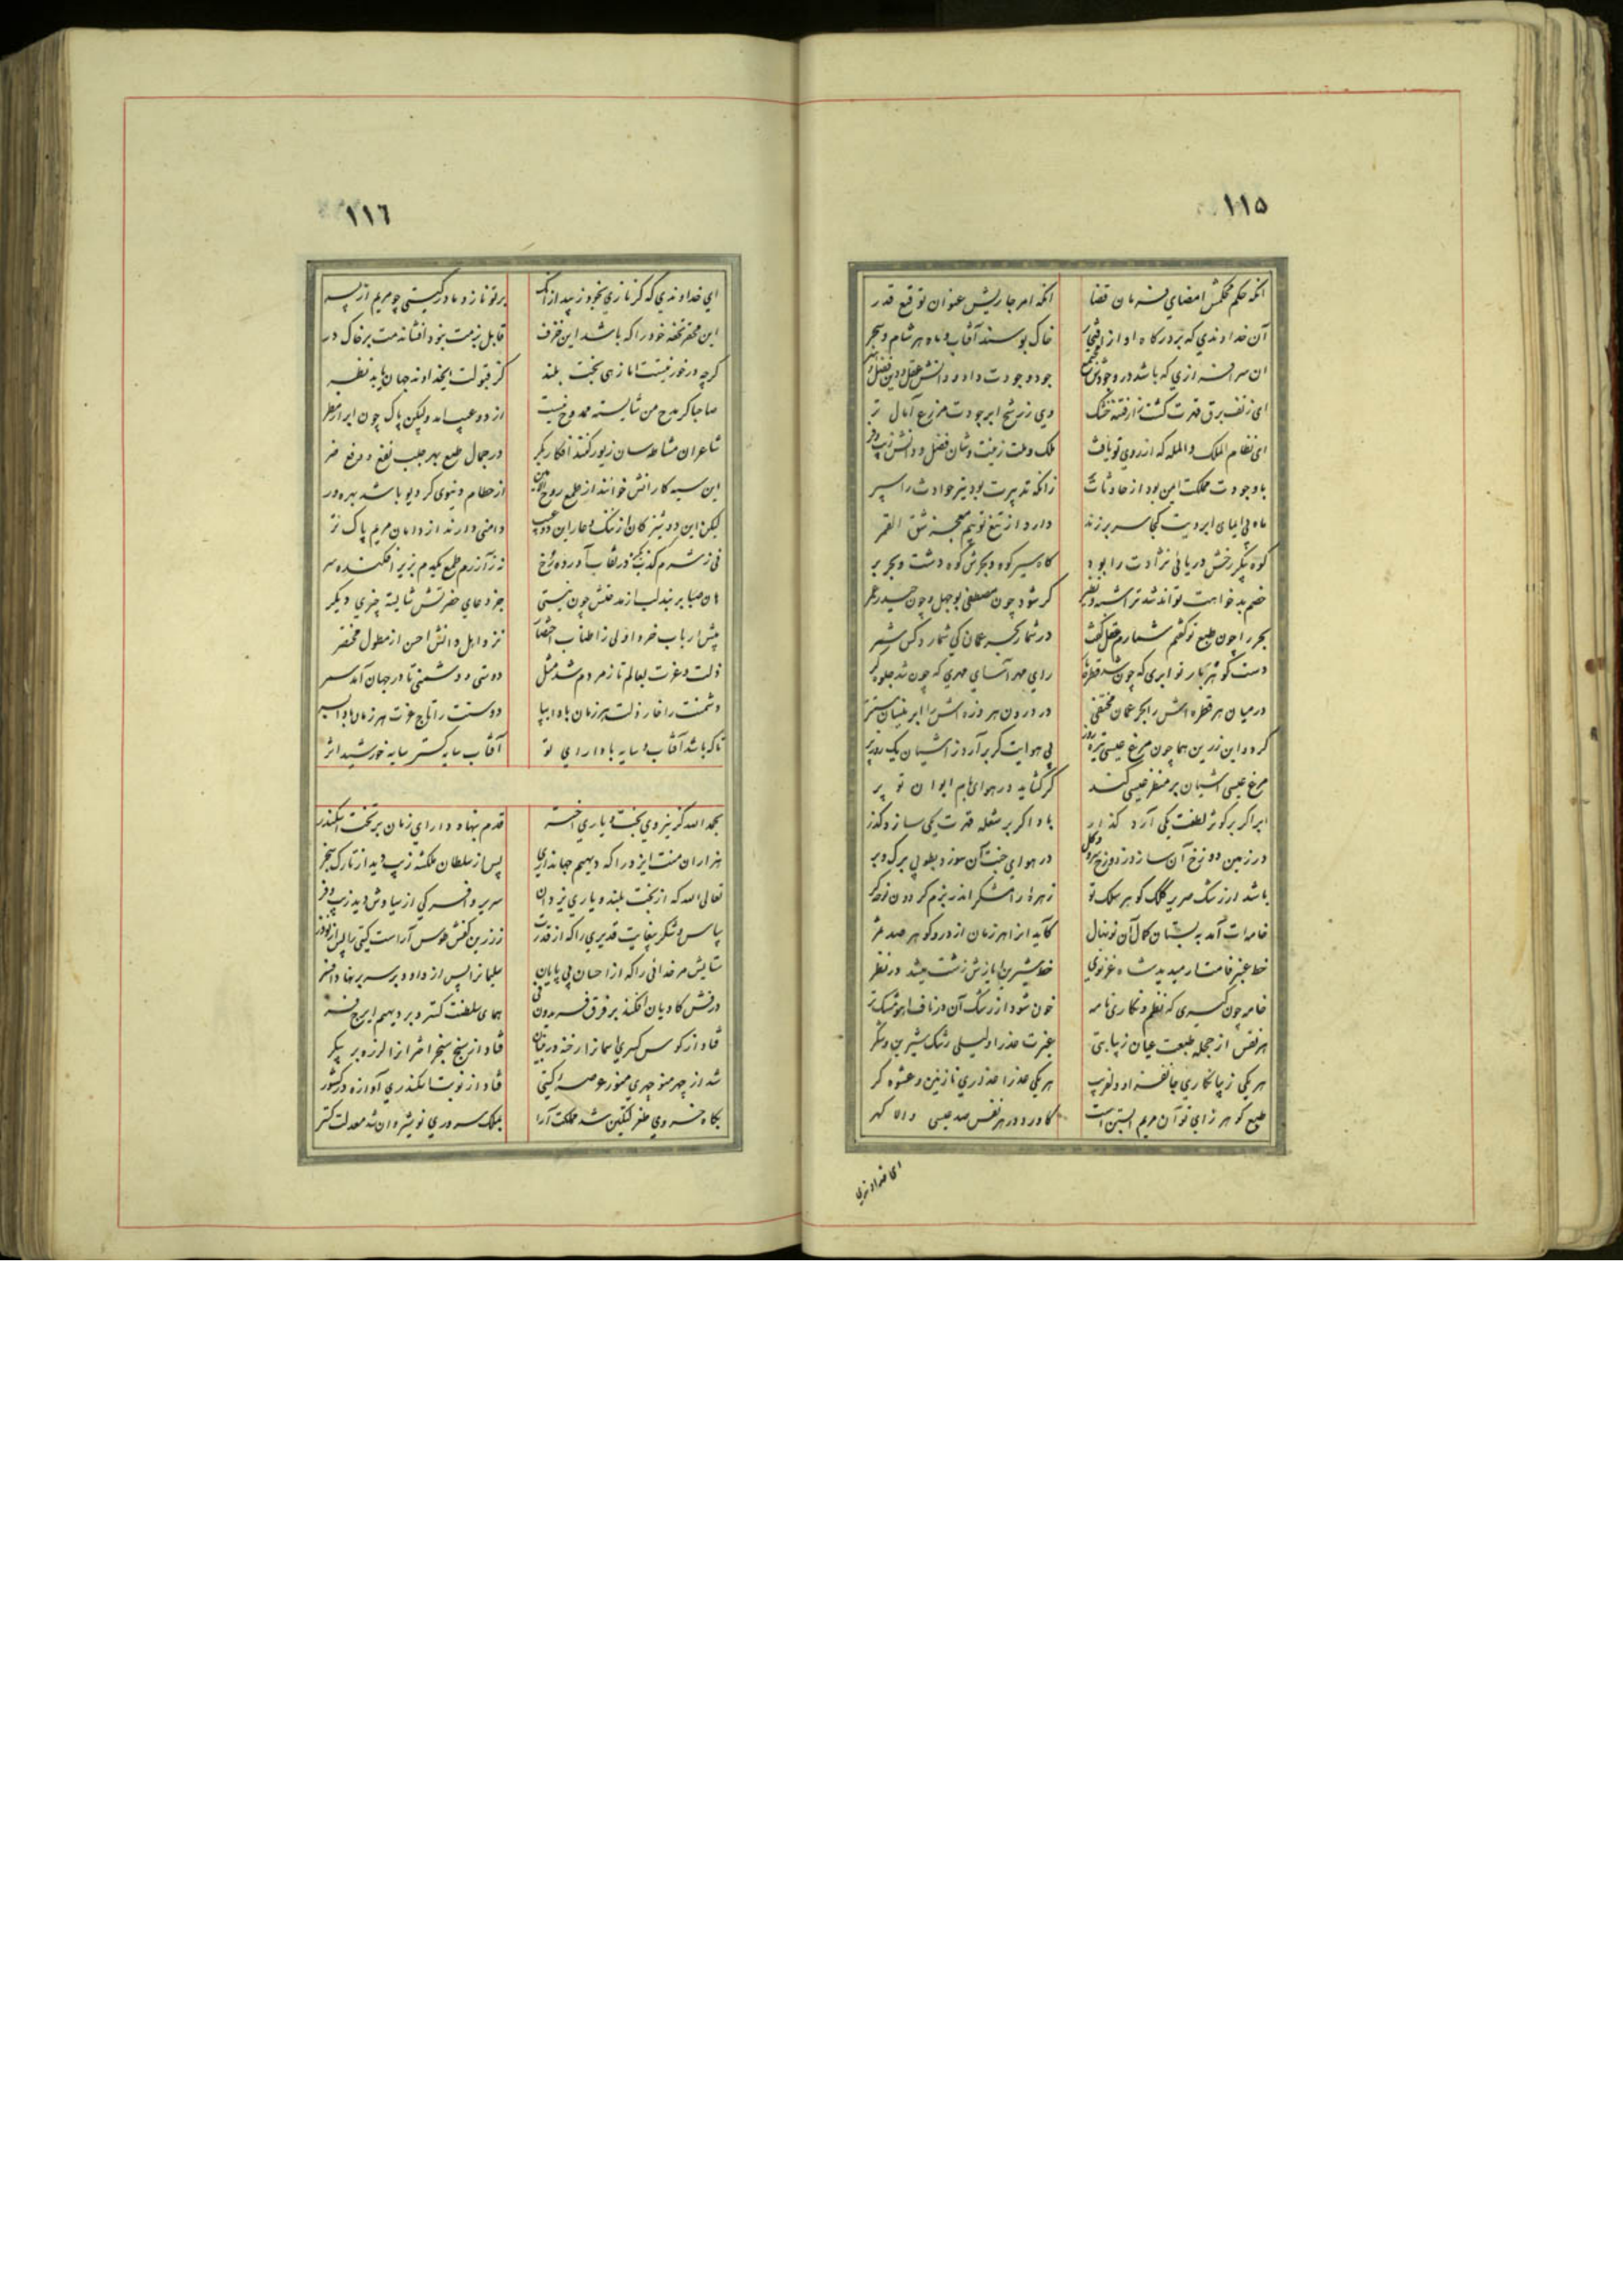 ١١٥
انکه حکم محکمش امضای فرمان قضا انکه امر جاریش عنوان توقیع قدر
آن خداوندی که بر درکاه او از افتخار خاک بوسند آفتاب و ماه هر شام و سحر
ان سرافرازی که باشد در وجودش جود وجودت داد و دانش عقل و دین فضل و هنر
ای زتف برق قهرت کشت فتنه خشک وی ز رشح ابر جودت مزرع آمال تر
ای نظام الملک والمله که از روی تو یافت ملک و ملت زینت و شان فضل و دانش زیب و فر
با وجودت مملکت ایمن بود از حادثات زانکه تدبیرت بود نیز حوادث را سپر
ماه بی ایمای ابرویت کجا سر برزند دارد از تیغ تو بیم معجز شق القمر
کوه پیکر رخش دریائی نژادت را بود کاه سیر کوه و بحرش کوه دشت و بحر بر
خصم بدخواهت تواند شد ترا شبه و نظیر کر شود چون مصطفی بوجهل و چون حیدر عمر
بحر را چون طبع تو کفتم شمارم عقل کفت در شمار بحر عمان کی شمارد کس شمر
دست کوهر بار تو ابری که چون شد قطره‌بار رای مهر آسای مهری که چون شد جلوه‌کر
در میان هر قطره اش را بحر عمان مختفی در درون هر ذره اش را ابر نیسان مستتر
کردد این زرین هما چون مرغ عیسی تیره روز بی هوایت کر بر آرد ز اشیان یک روز پر
مرغ عیسی اشیان بر منظر عیسی کند کر کشاید در هوای بام ایوان تو پر
ابر اکر بر کوثر لطفت یکی آرد کذار باد اکر بر شعله قهرت یکی سازد کذر
در زمین دوزخ آن سازد ز دوزخ سرو و کل در هوای جنت آن سوزد بطوبی برک و بر
باشد از رشک صریر کلک کوهر سلک تو زهره را رامشکر اندر بزم کردون نوحه کر
خامه‌ات آمد به بستان کمال آن نونهال کاید از او هر زمان از در و کوهر صد ثمر
خط عنبر فامت ار میدید شاه غزنوی خط شیرین ایازش زشت میشد در نظر
خامه چون کیری که نظم و نثر نکاری نامه خون شود از رشک آن در ناف اهو مشک تر
هر نفس از حجله طبعت عیان زیبا بتی غیرت عذرا و لیلی رشک شیرین و شکر
هر یکی زیبا نکاری جانفزا و دلفریب هر یکی عذرا عذاری نازنین و عشوه کر
طبع کوهر زای تو آن مریم آبستن است کاورد در هر نفس صد عیسی والا کهر
ای خداوندی
١١٦
ای خداوندی که کر نازی بخود زیبد از آنک بر تو نازد مادر کیتی چو مریم از پسر
این محقر تحفه خود را که باشد این خزف قابل بزمت نبود افشاندمت بر خاک در
کرچه در خور نیست اما زهی بخت بلند کر قبولت ایخداوند جهان یابد نظر
صاحبا کر مدح من شایسته ممدوح نیست از دو عیب امد ولیکن پاک چون ابر از مطر
شاعران مشاطه سان زیور کنند افکار بکر در جمال طبع بهر جلب نفع و دفع ضر
این سیه کارانش خوانند از طمع روح الامین از حطام دنیوی کر دیو باشد بهره‌ور
لیکن این دوشیزکان از ننک و عار این دو عیب دامنی دارند از دامان مریم پاک تر
نی ز شرم کذب یکدم در نقاب آورده رخ نه ز آزرم طمع یکدم بزیر افکنده سر
هان صبا بر بند لب از مدحتش چون نیستی جز دعای حضرتش شایسته چیزی دیکر
پیش ارباب خرد اولی ز اطناب اختصار نزد اهل دانش احسن از مطول مختصر
ذلت و عزت بعالم تا ز مردم شد مثل دوستی و دشمنی تا در جهان آمد سمر
دشمنت را خار ذلت هر زمان بادا بپا دوستت را تاج عزت هر زمان بادا بسر
تا که باشد آفتاب و سایه بادا رای تو آفتاب سایه کستر سایه خورشید اثر
بحمد الله کز نیروی بخت و یاری اختر قدم بنهاد دارای زمان بر تخت اسکندر
هزاران منت ایزد را که دیهیم جهانداری پس از سلطان ملکشه زیب دید از تارک سنجر
تعالی الله که از بخت بلند و یاری یزدان سریر و افسر کی از سیاوش دید زیب و فر
سپاس و شکر بیغایت قدیری را که از قدرت ز زرین کفش طوس آراست کیتی را پس از نوذر
ستایش مر خدائی را که از احسان بی پایان سلیمان را پس از داود بر سر بر نهاد افسر
درفش کاویان افکند بر فرق فریدون فی همای سلطنت کسترد بر دیهیم ایرج فر
فتاد از کوس کسری آسمان را رخنه در بنیان فتاد از سنج سنجر اختران را لرزه بر پیکر
شد از چهر منوچهری منور عرصه کیتی فتاد از نوبت اسکندری آوازه در کشور
بکاه خسروی طغرلتکین شد مملکت آرا بملک سروری نوشیروان شد معدلت کستر